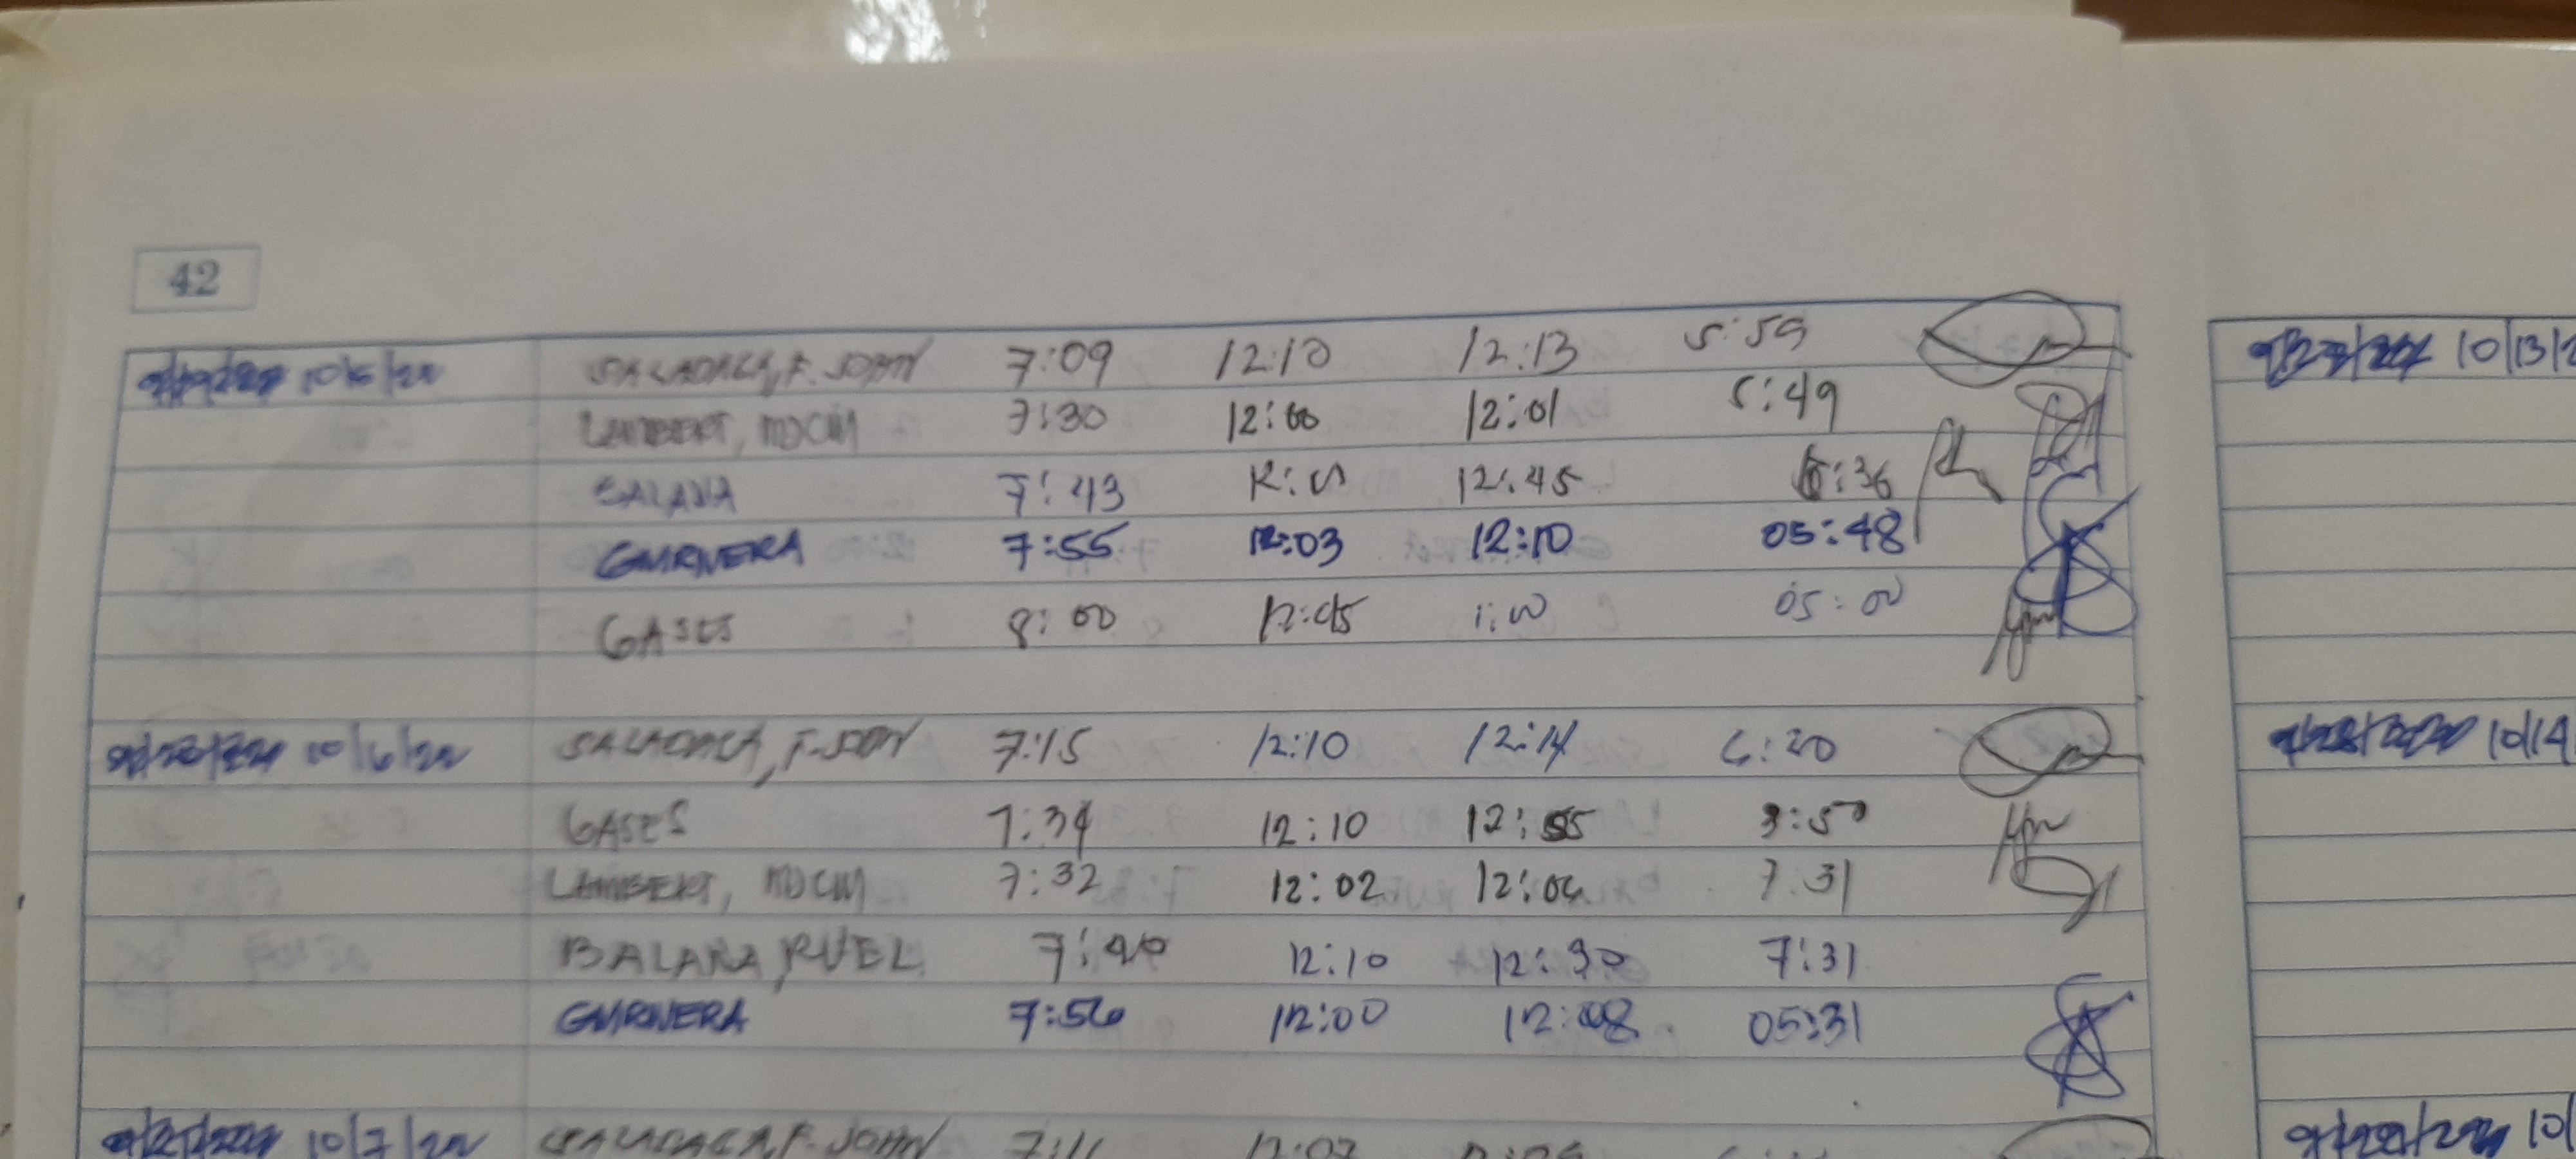 42
10/5/22 SALADAGA, F. JOHN 7:09 12:10 12:13 5:59 10/13/2
LAMBERT, MDCM 7:30 12:00 12:01 5:49
BALANA 7:43 12:45 5:36
GUIRNERA 7:55 12:03 12:10 05:48
GASES 8:00 12:45 1:00 05:00
10/6/22 SALADAGA, F. JOHN 7:15 12:10 12:14 6:20 10/14
GASES 7:34 12:10 12:55 :50
LAMBERT, MDCM 7:32 12:02 12:06 7:31
BALANA, RUEL 7:40 12:10 12:30 7:31
GUIRNERA 7:56 12:00 12:08 05:31
10/7/22 SALADAGA, F. JOHN 7:11 12:07 10/